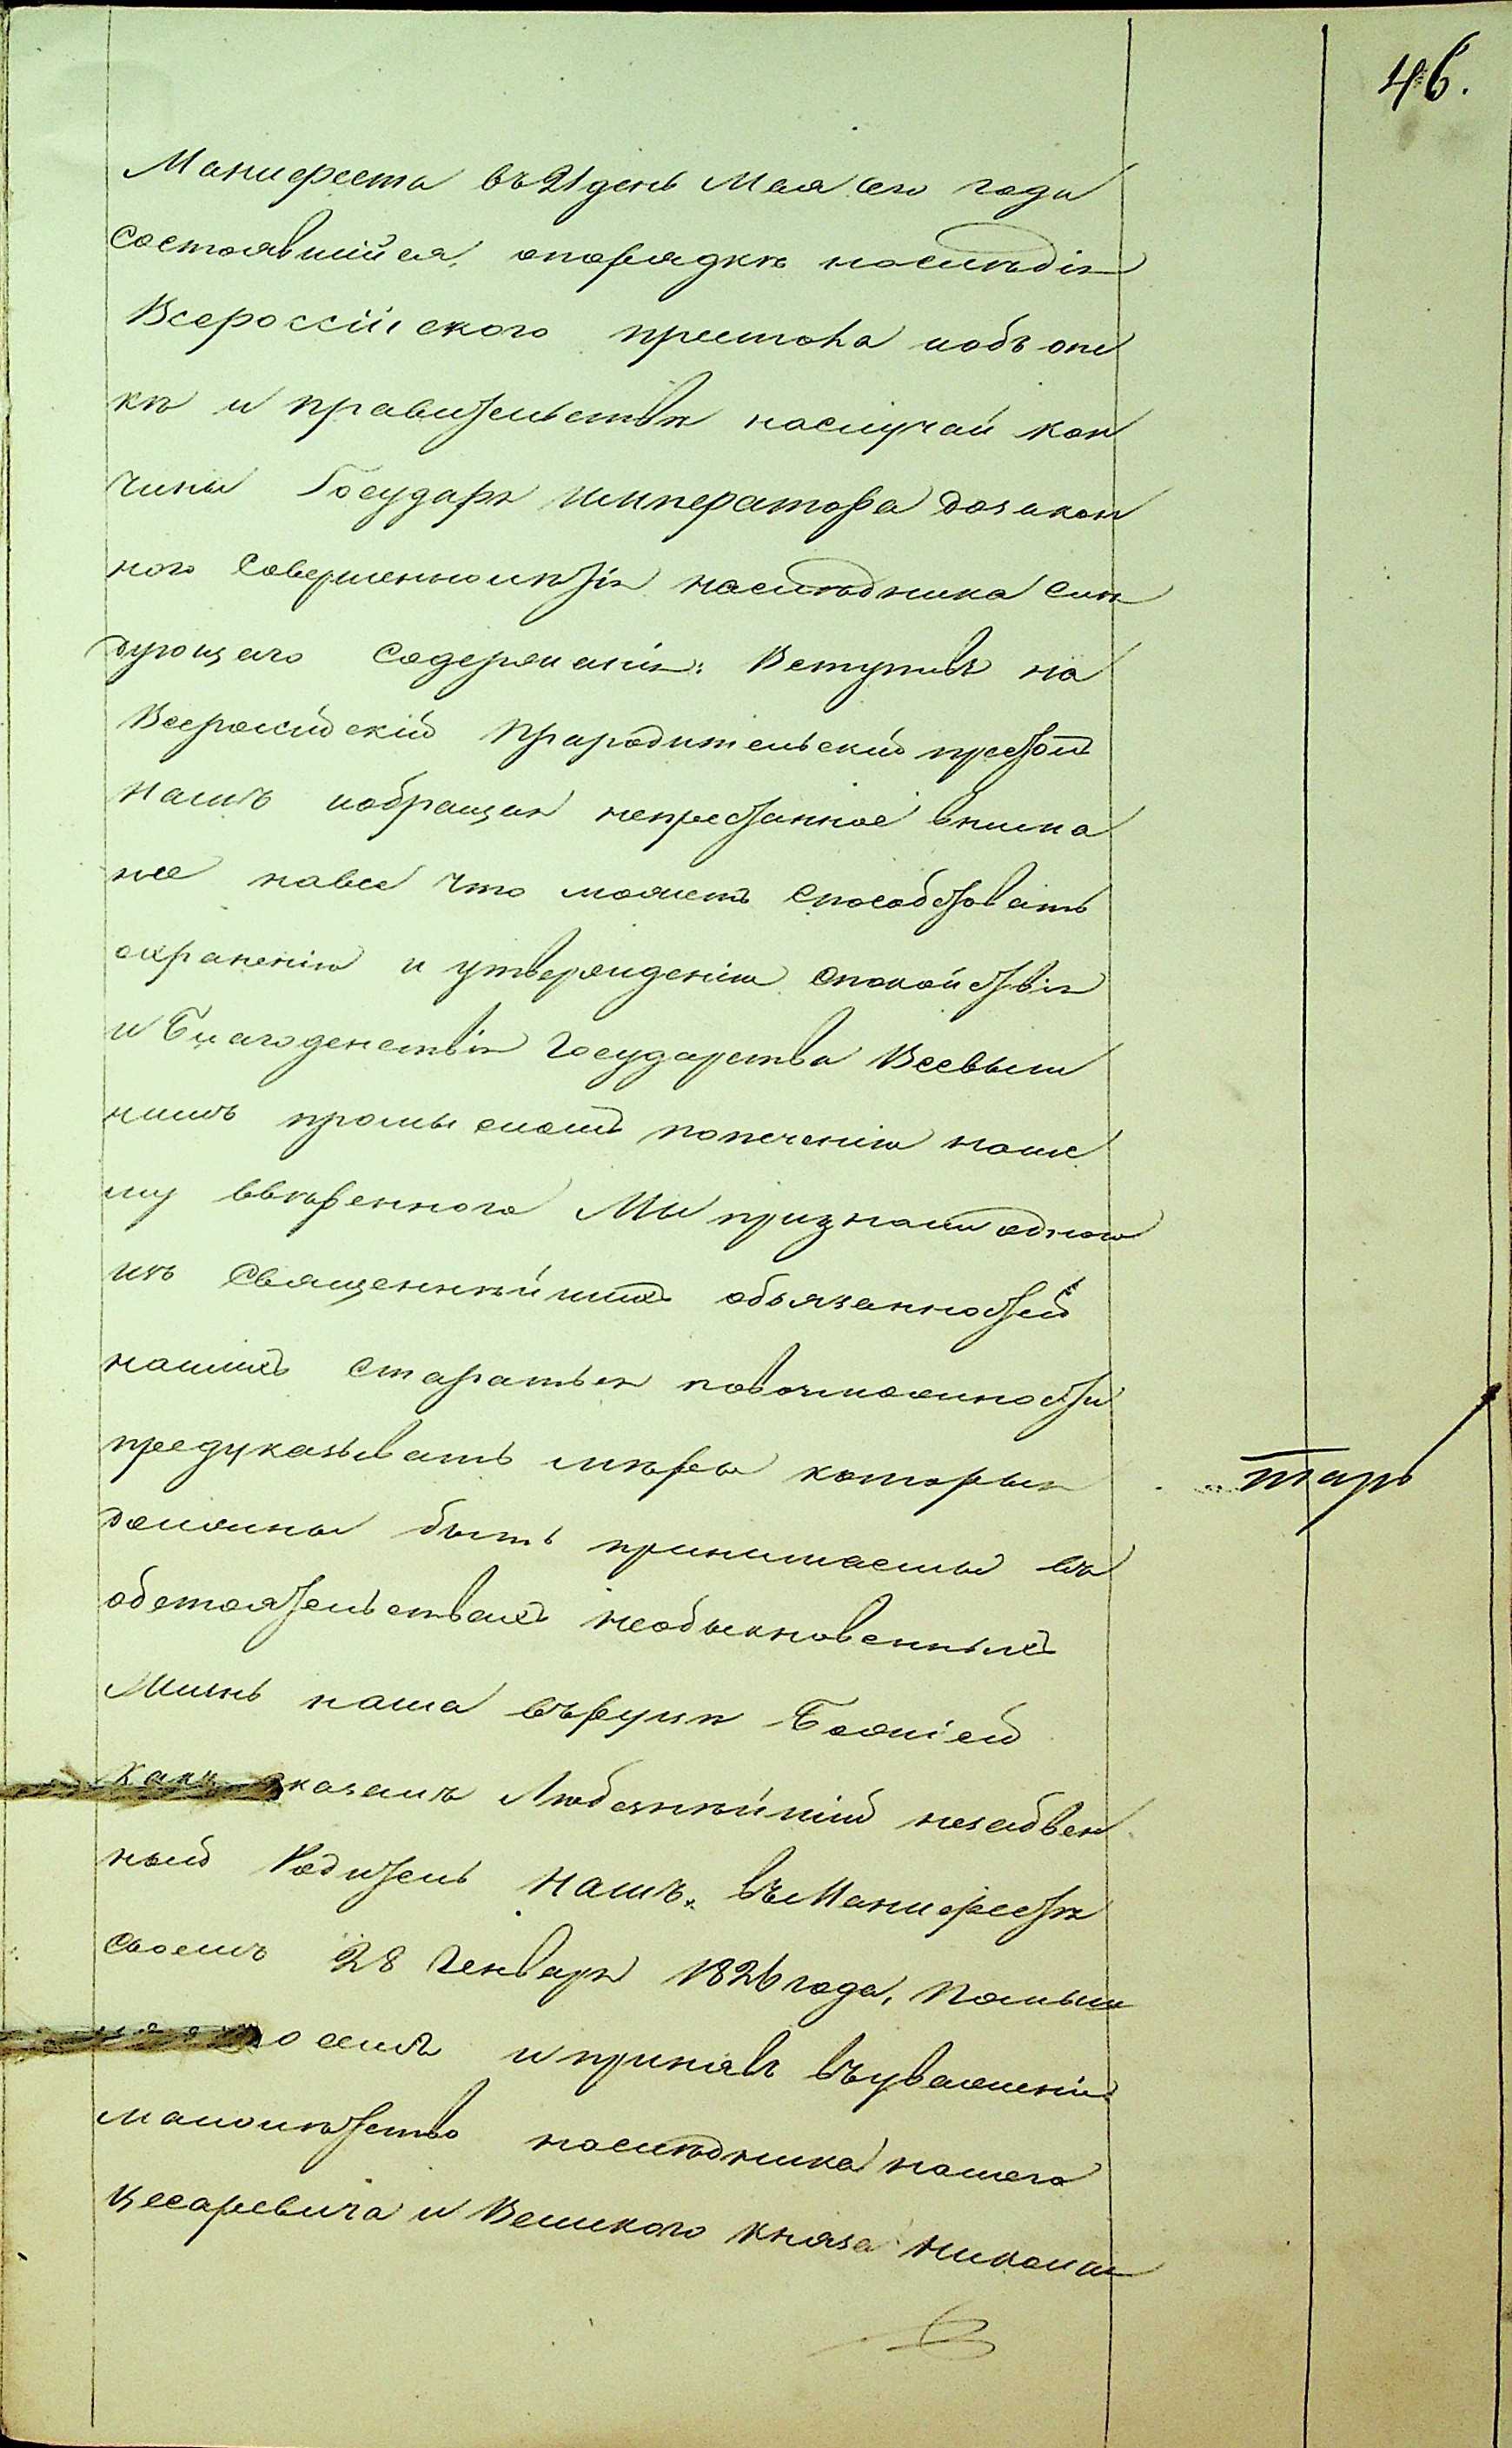 46.
Манифеста въ 21 день Мая сего года
состоявшійся, опорядкѣ наслѣдія
Всероссійского престола иобъ опе
кѣ и правительствѣ наслучай кон
чины Государя императора дозакон
ного совершеннолѣтія наслѣдника слѣ
дующаго содержанія: Вступивъ на
Всероссійскій прародительскій престолъ
нашъ иобращая непрестанное внима
ніе навсе что можетъ способствовать
охраненію и утвержденію спокойствія
и Благоденствія Государства Всевыш
нимъ промысломъ попеченію наше
му ввѣренного Мы признали одною
изъ священнѣйшихъ обязанностей
нашихъ стараться повозможности
предуказывать мѣры которыя
должны быть принимаемы въ
обстоятельствахъ необыкновенныхъ
Жизнь наша въруцѣ Божіей
какъ сказалъ Любезнѣйшій незабвен
ный Родитель нашъ. въ Манифестѣ
своемъ 28 Генваря 1826 года, Помыш
о семъ и принявъ въуваженіе
малолѣтство наслѣдника нашего
цесаревича и Великого князя Николая
тарь